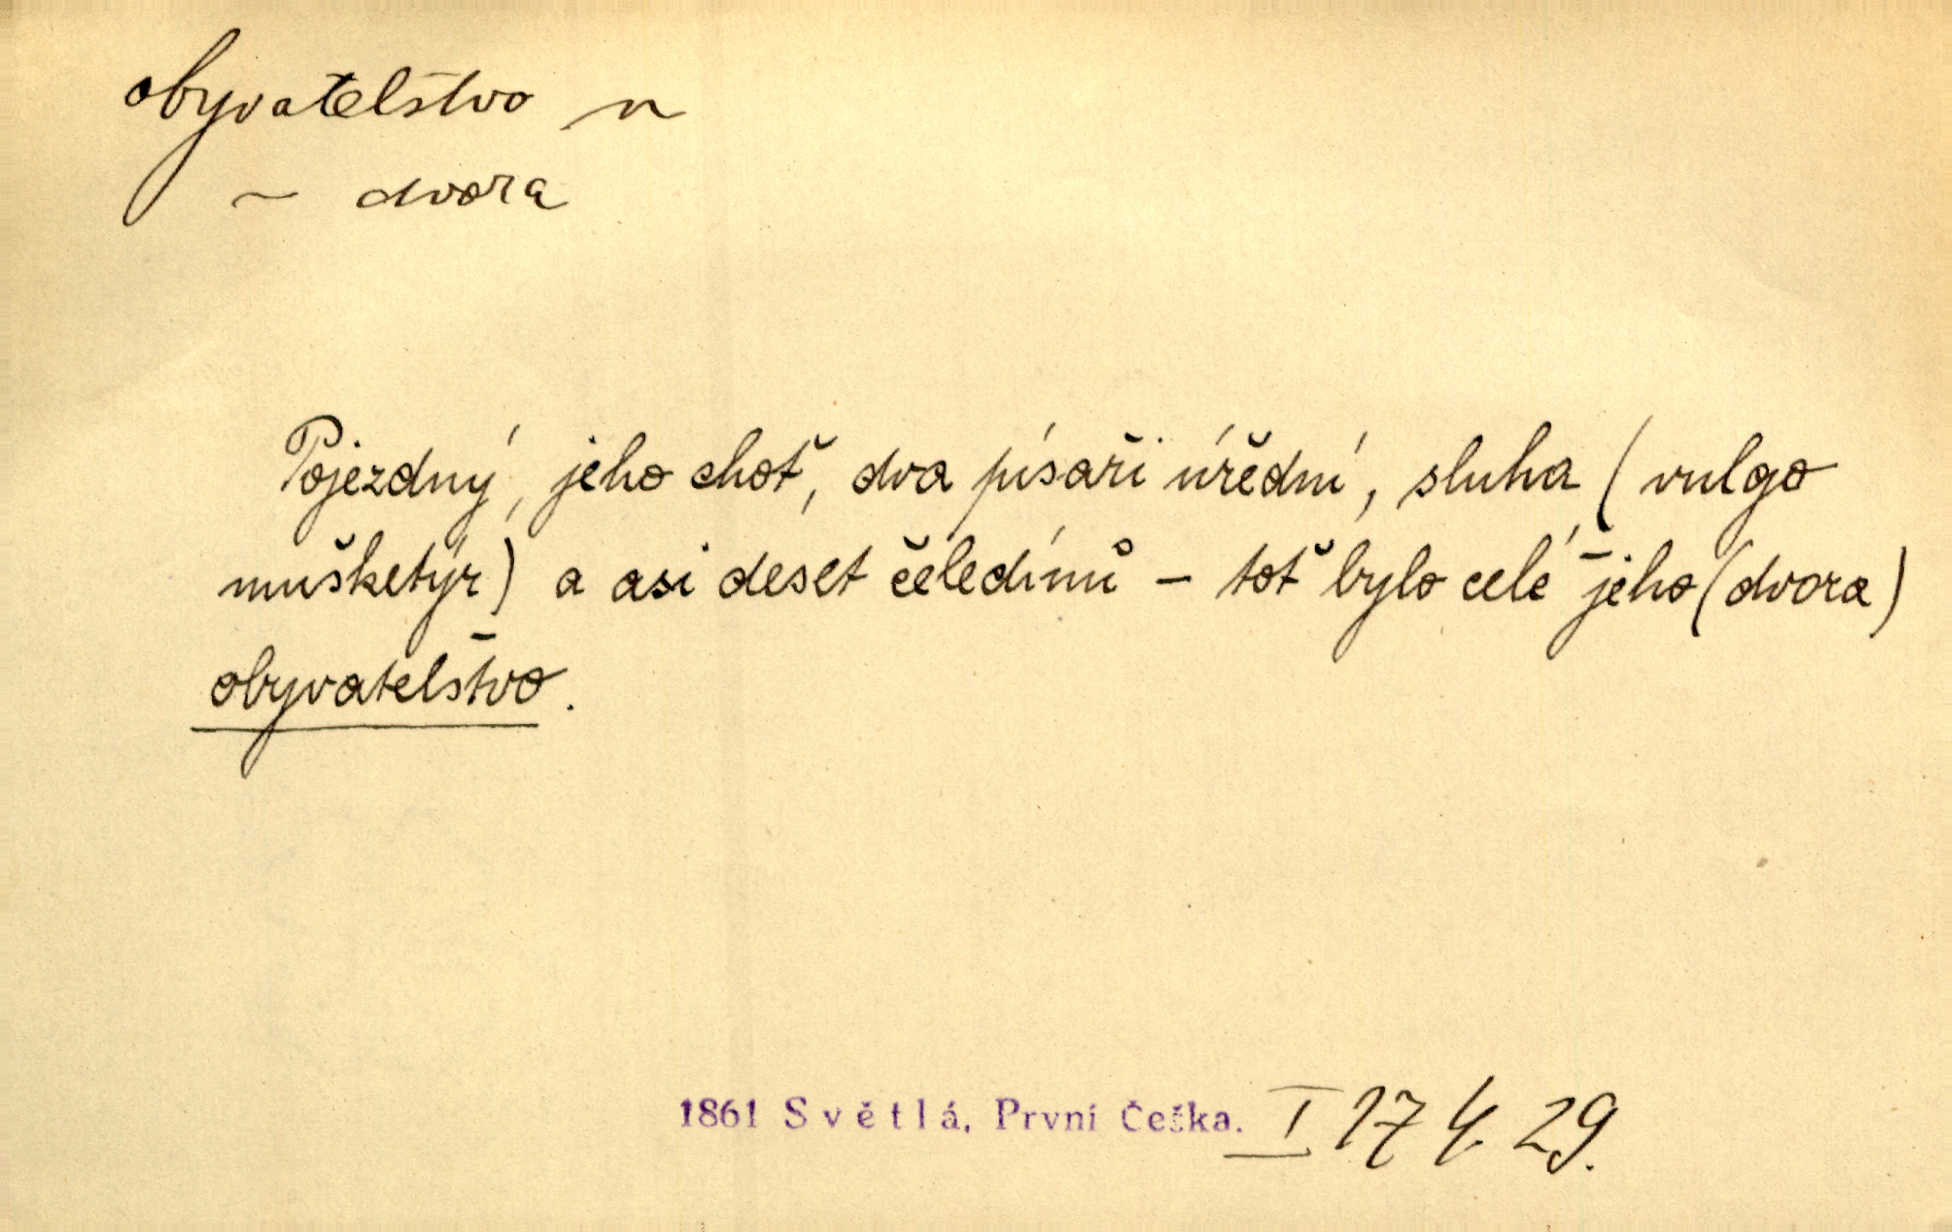 obyvatelstvo n
~ dvora
Pojezdný, jeho choť, dva písaři úřední, sluha (vulgo
mušketýr) a asi deset čeledínů – toť bylo celé jeho (dvora)
obyvatelstvo.
1861 Světlá, První Češka. I 17 4. 29.